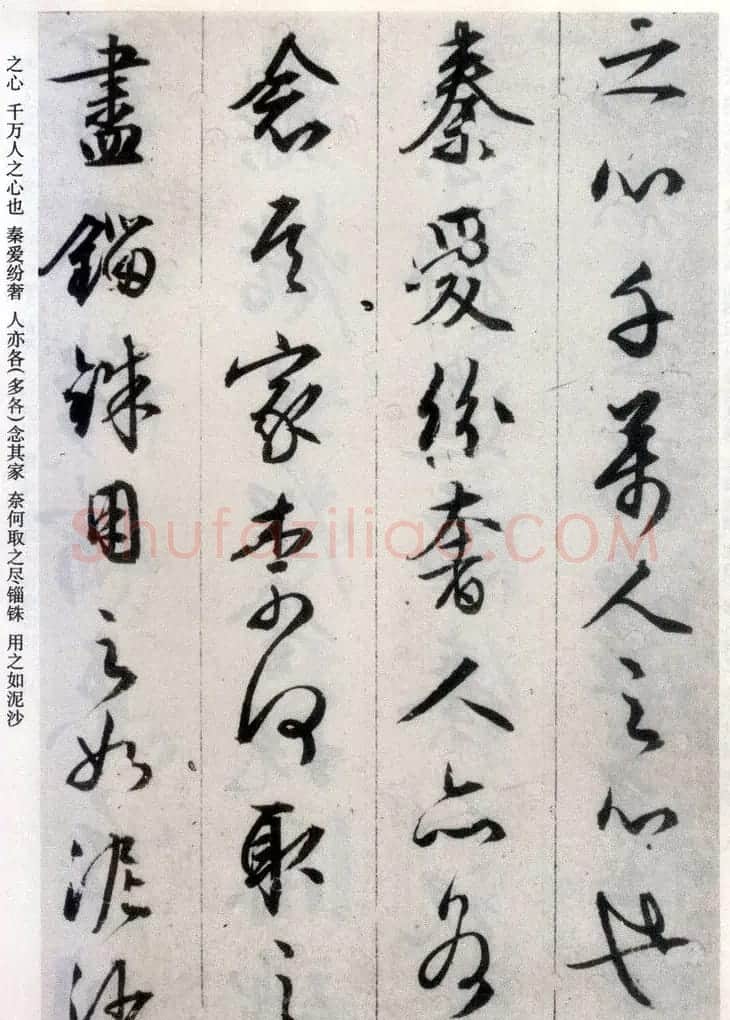 之心千萬人之心也
秦愛紛奢人亦各
念其家柰何取之
盡錙銖用之如泥沙
之心 千万人之心也 秦爱纷奢 人亦各(多各)念其家 奈何取之尽锱铢 用之如泥沙
Shufaziliao.COM